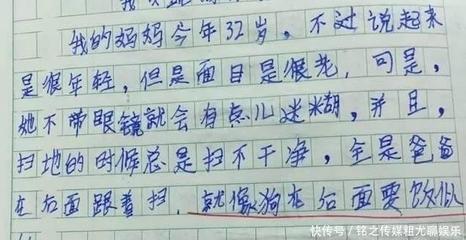 我的妈妈今年32岁，不过说起来
是很年轻，但是面目是很老，可是，
她不带眼镜就会有点儿迷糊，并且，
扫地的时候总是扫不干净，全是爸爸
在后面跟着扫，就像狗在后面要饭似
快传号/铭之传媒租尤聊娱乐